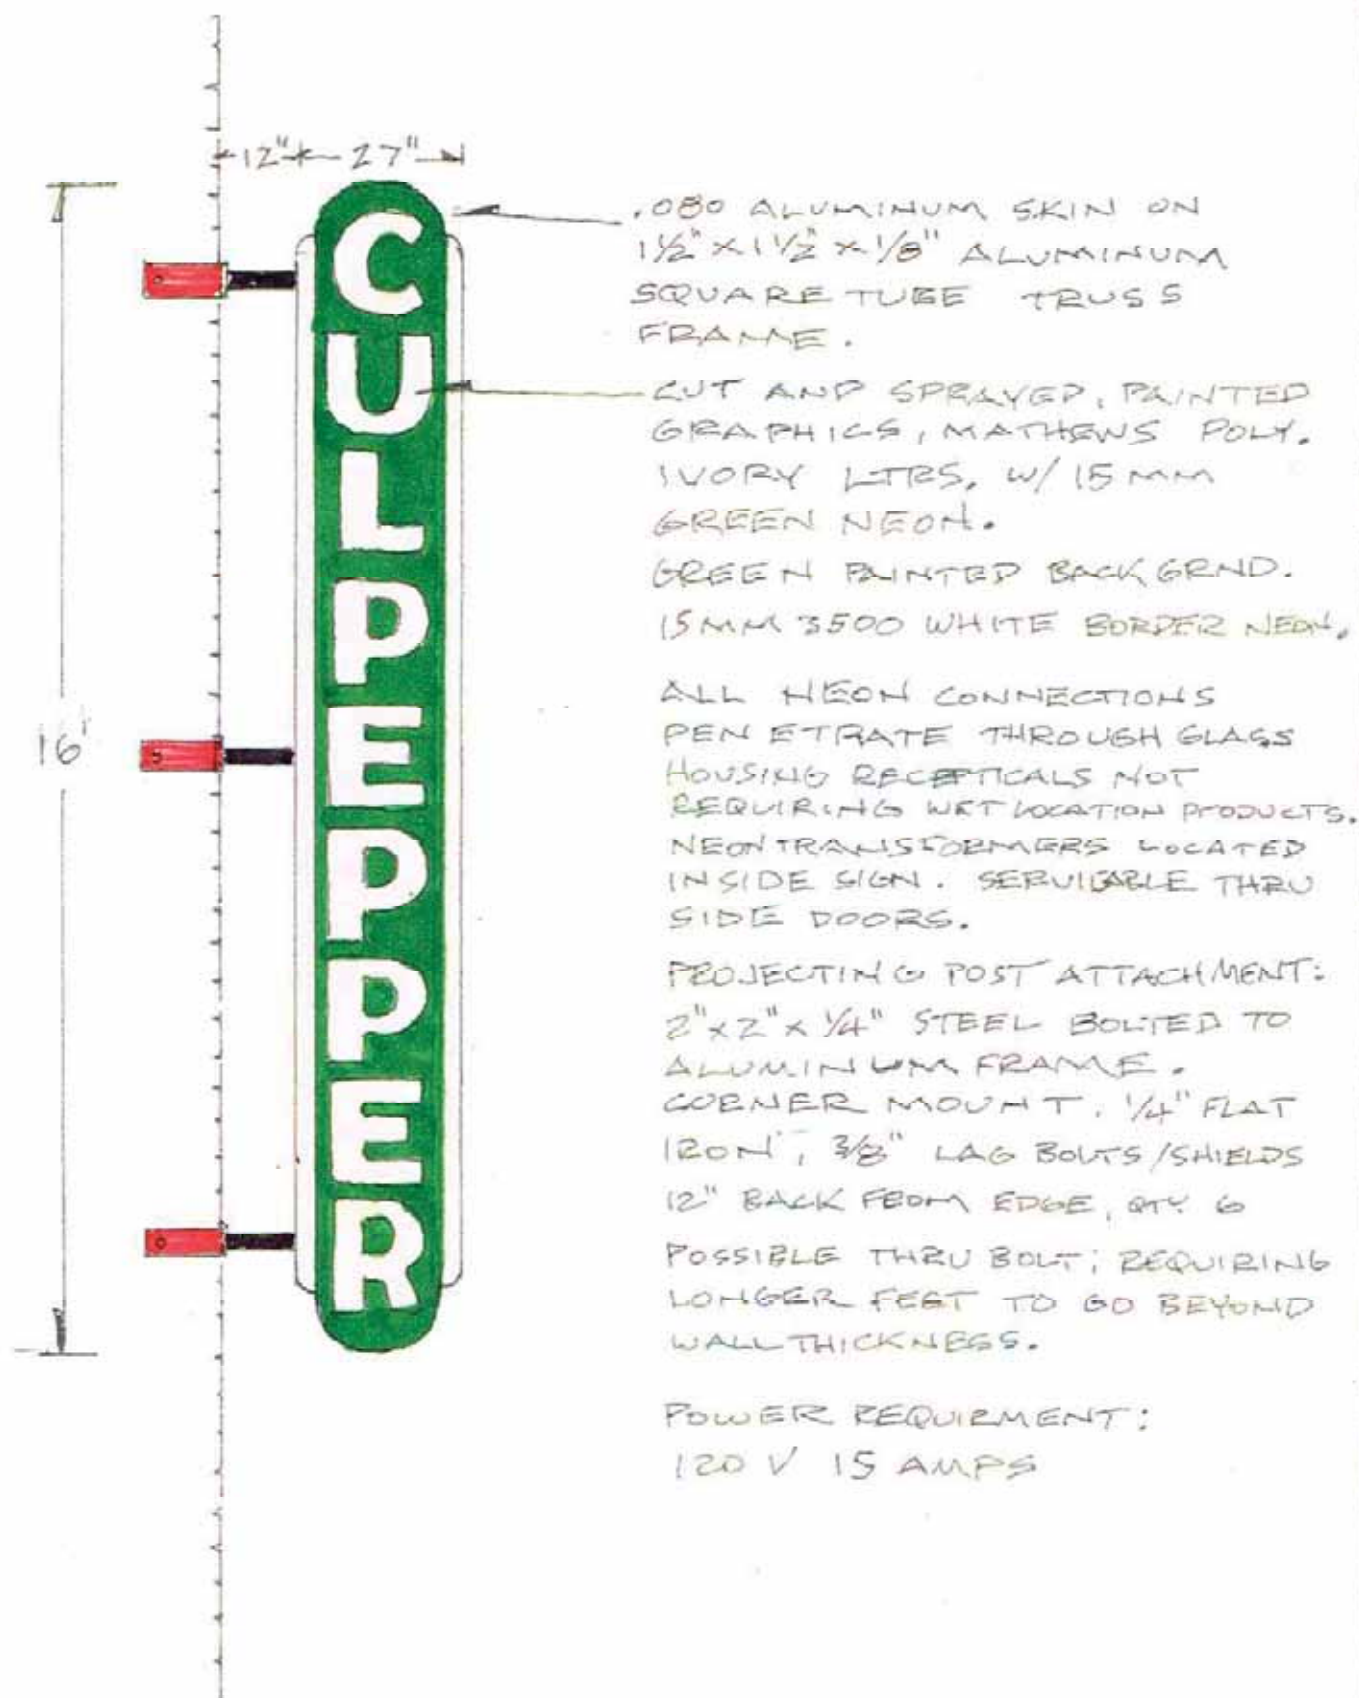 12" 27"
16'
C
U
L
P
E
P
P
E
R
.080 ALUMINUM SKIN ON
1½" x 1½" x ⅛" ALUMINUM
SQUARE TUBE TRUSS
FRAME.
CUT AND SPRAYED, PAINTED
GRAPHICS, MATHEWS POLY.
IVORY LTRS, W/ 15 MM
GREEN NEON.
GREEN PAINTED BACKGRND.
15MM 3500 WHITE BORDER NEON.
ALL NEON CONNECTIONS
PENETRATE THROUGH GLASS
HOUSING RECEPTICALS NOT
REQUIRING WET LOCATION PRODUCTS.
NEON TRANSFORMERS LOCATED
INSIDE SIGN. SERVICABLE THRU
SIDE DOORS.
PROJECTING POST ATTACHMENT:
2" x 2" x ¼" STEEL BOLTED TO
ALUMINUM FRAME.
CORNER MOUNT. ¼" FLAT
IRON, ⅜" LAG BOLTS/SHIELDS
12" BACK FROM EDGE, QTY. 6
POSSIBLE THRU BOLT; REQUIRING
LONGER FEET TO GO BEYOND
WALL THICKNESS.
POWER REQUIRMENT:
120 V 15 AMPS